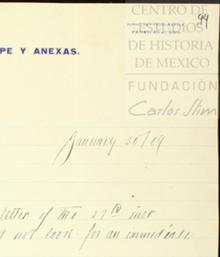 CENTRO DE
ESTUDIOS
DE HISTORIA
DE MEXICO
PE Y ANEXAS.
FUNDACIÓN
Carlos Slim
January 30/09
letter of the 27th inst
not look for an immediate